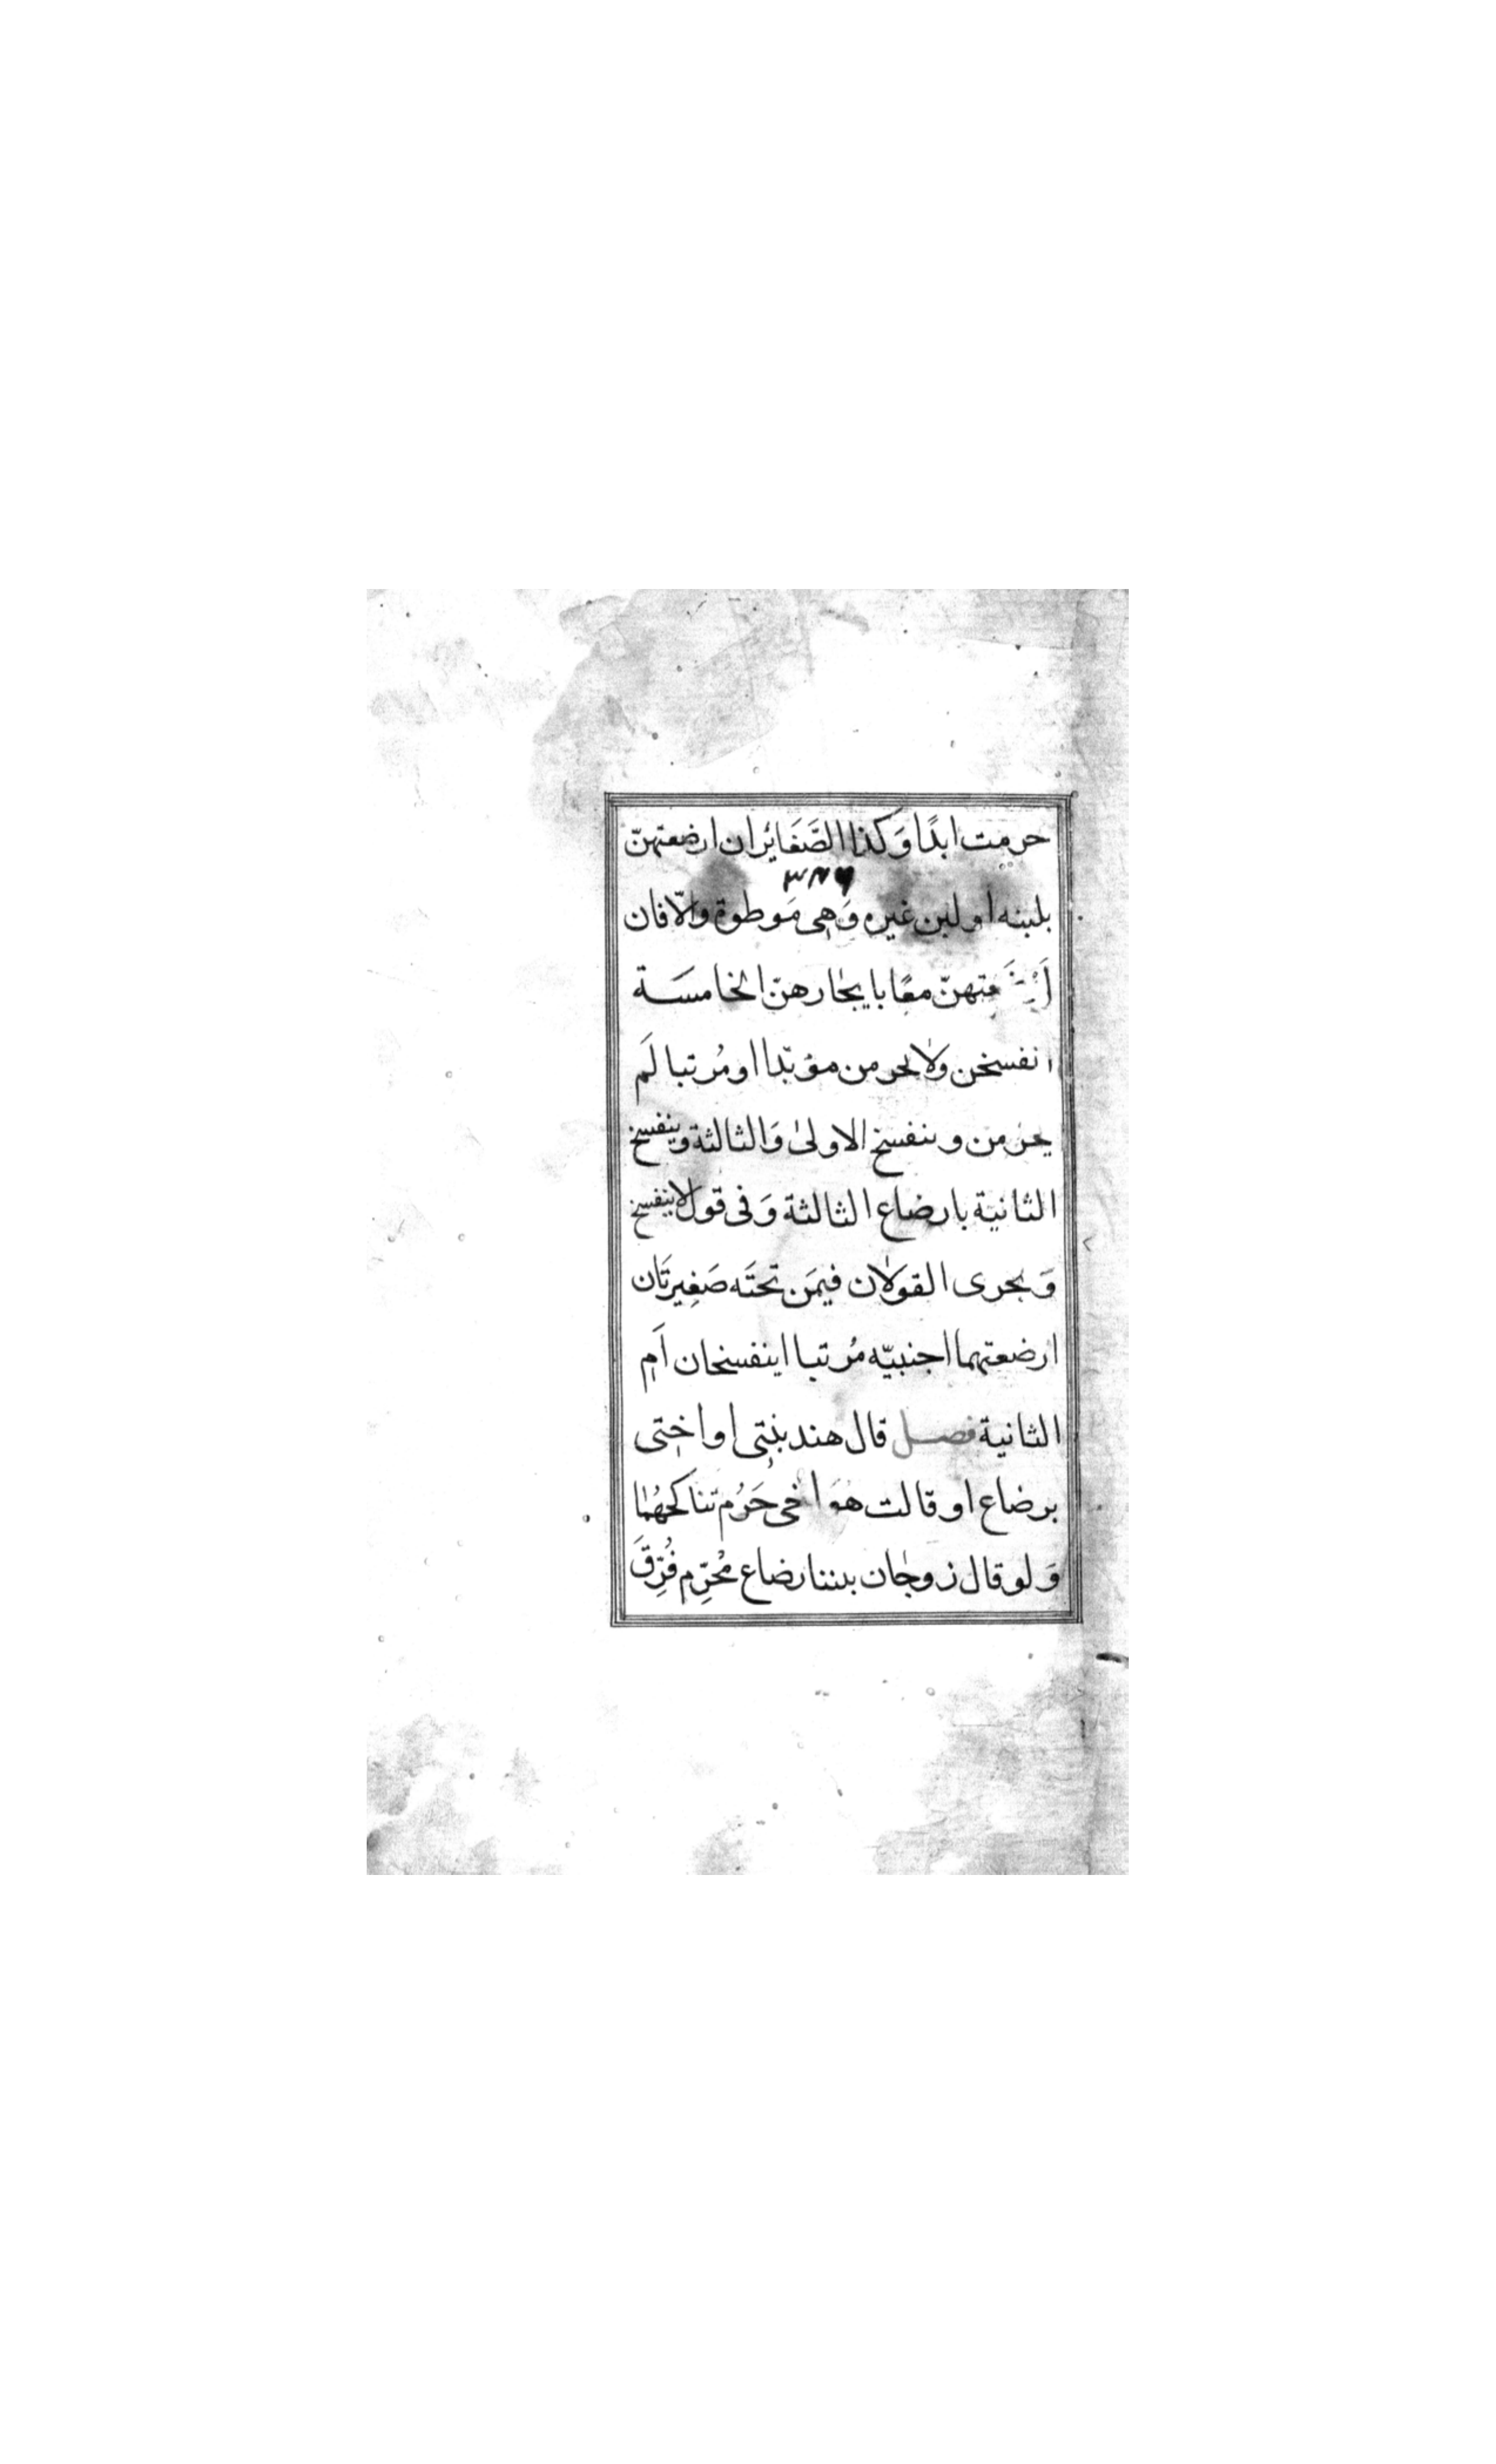 حرمت ابدًا وَكذا الصَّغَائران ارضعتهنّ
بلبنه او لبن غيره وَهِى مَوطوة والّا فان
معًا بايجارهنّ الخامسَة
انفسخن ولا يحرمن مؤبّدا او مُرتبا لَم
يحرمن وينفسخ الاولىٰ وَالثالثة وينفسخ
الثانية بارضاع الثالثة وَفى قول لا ينفسخ
وَيجرى القولان فيمَن تحتَه صَغِيرتَان
ارضعتهما اجنبيّه مُرتبا اينفسخان اَم
الثانية فصل قال هند بنتى او اختى
برضاع او قالت هوَ اخى حَرُم تناكحهُمَا
وَلو قال زوجان بيننا رضاع مُحَرِّم فُرِّقَ